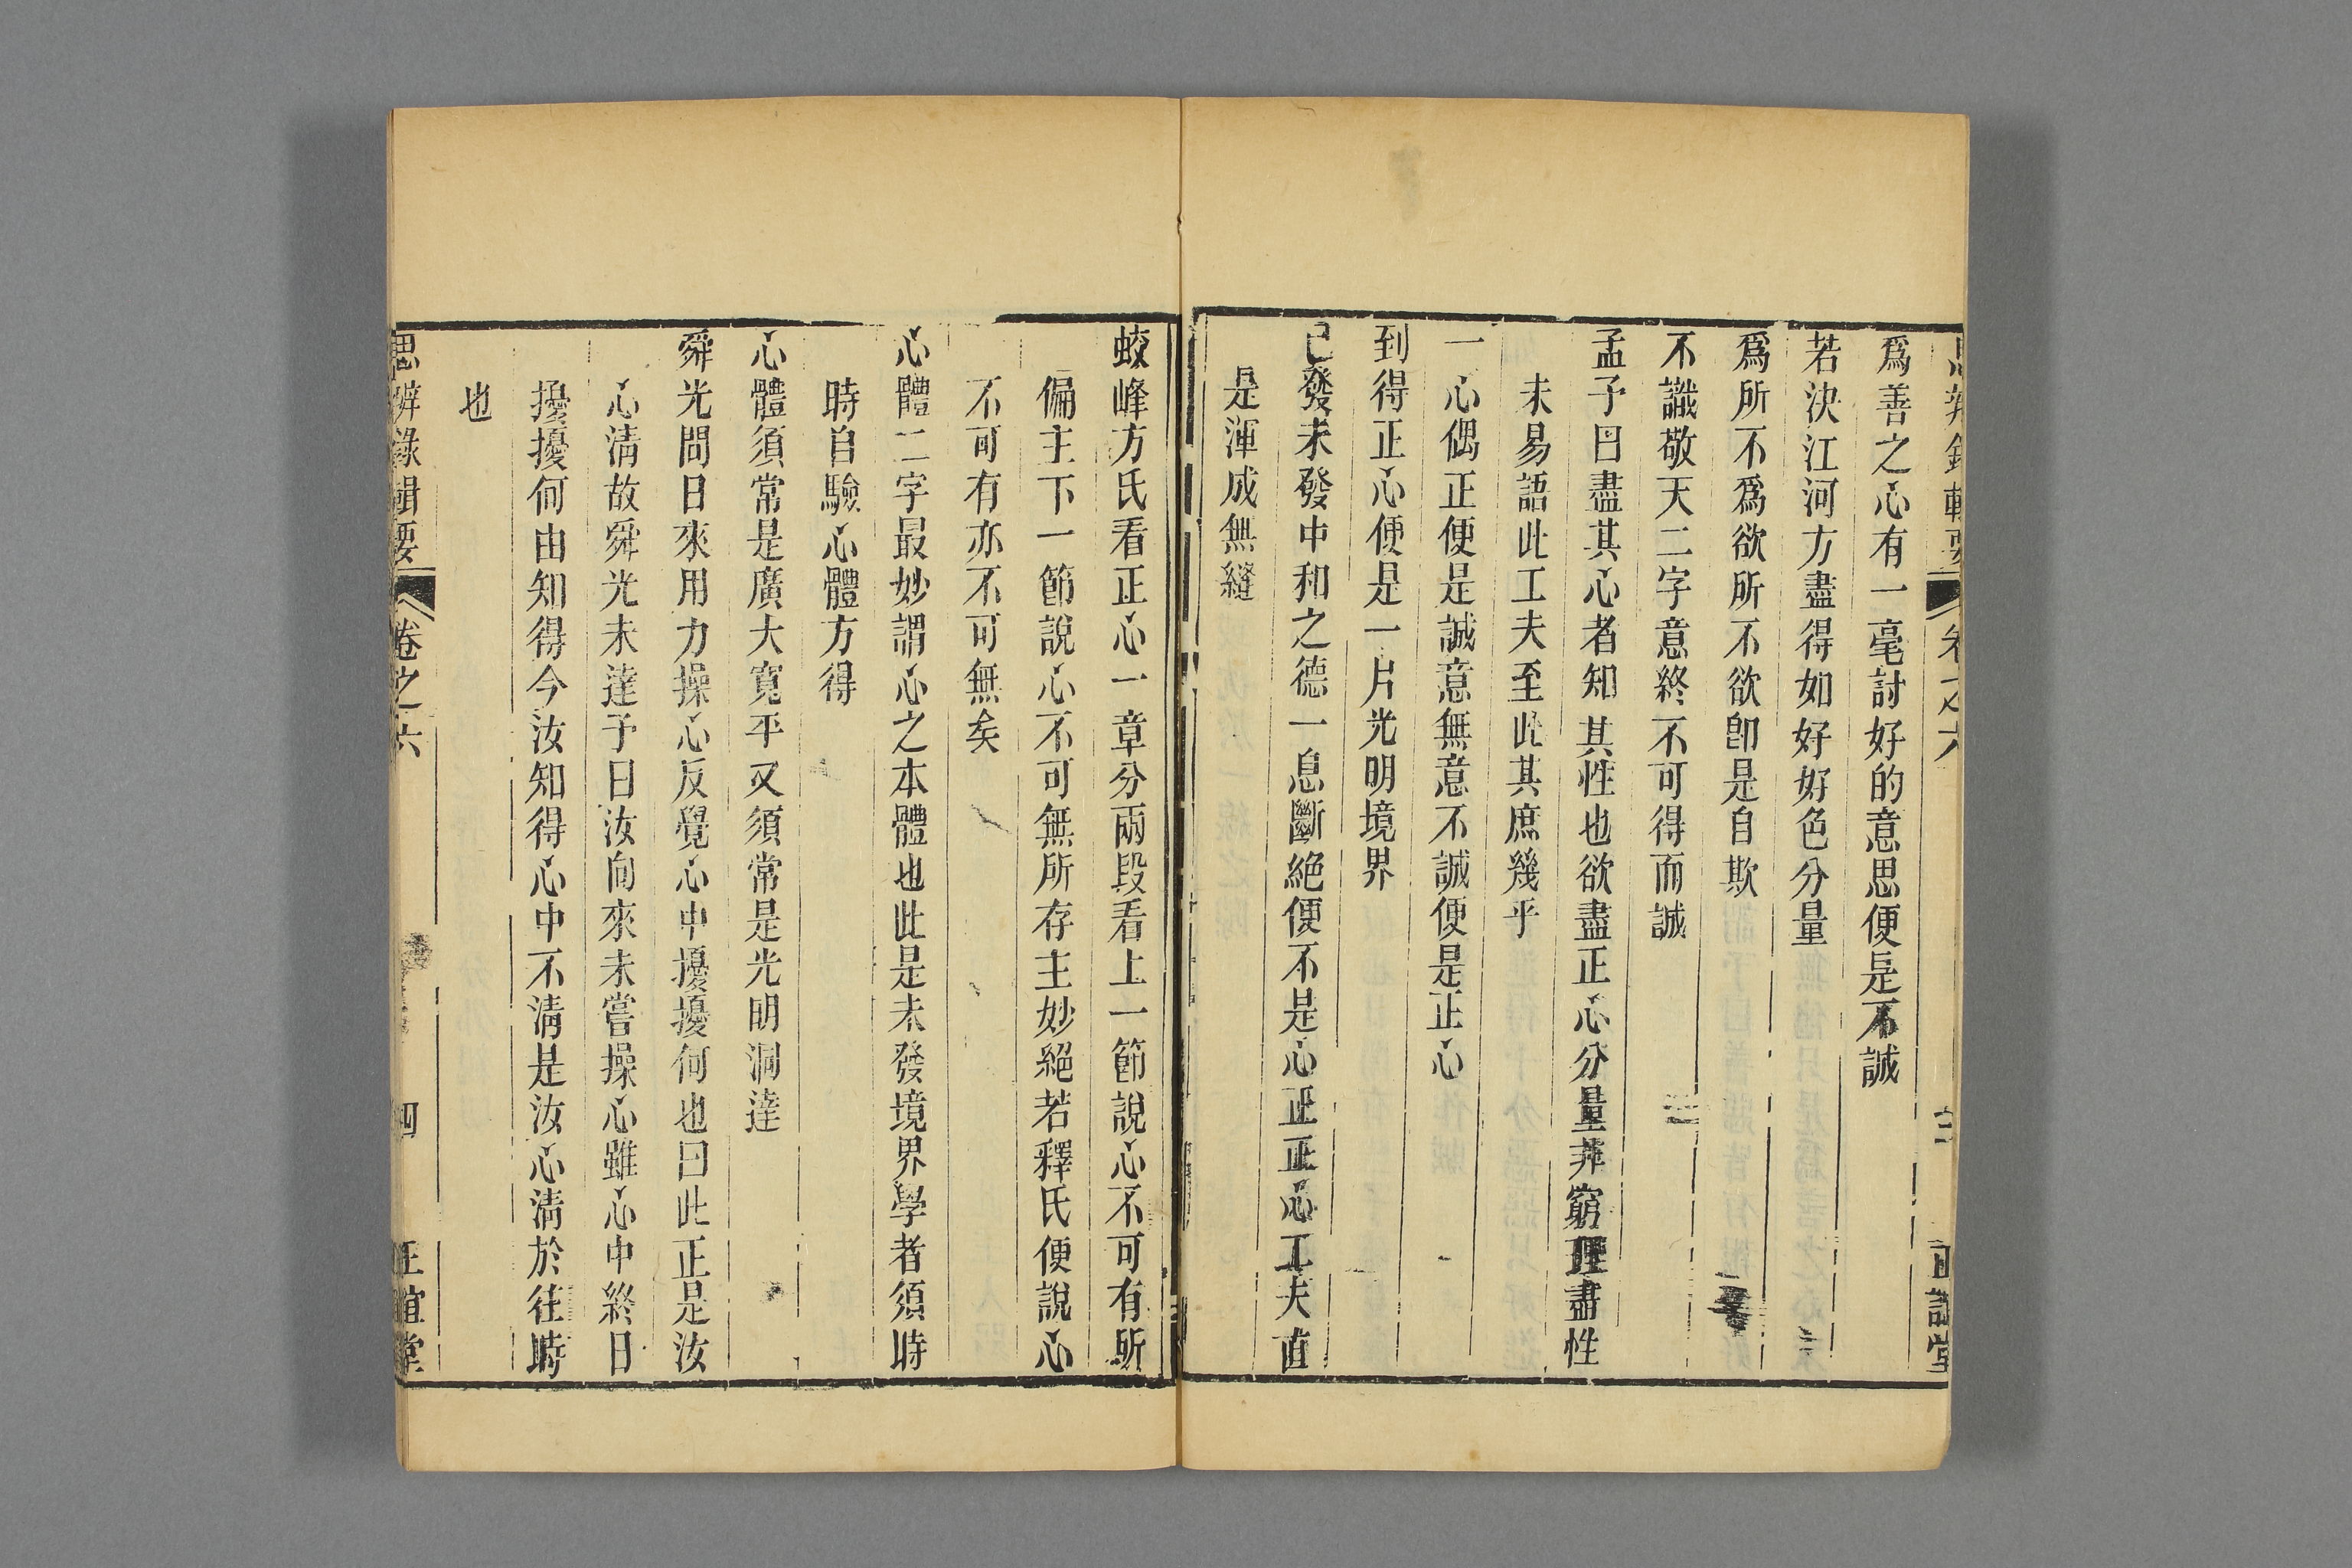 思辨錄輯要 卷之六 三 正誼堂
爲善之心有一毫討好的意思便是不誠
若決江河方盡得如好好色分量
爲所不爲欲所不欲卽是自欺
不識敬天二字意終不可得而誠
孟子曰盡其心者知其性也欲盡正心分量非窮理盡性
未易語此工夫至此其庶幾乎
一心偶正便是誠意無意不誠便是正心
到得正心便是一片光明境界
已發未發中和之德一息斷絕便不是心正正心工夫直
是渾成無縫
蛟峰方氏看正心一章分兩段看上一節說心不可有所
偏主下一節說心不可無所存主妙絕若釋氏便說心
不可有亦不可無矣
心體二字最妙謂心之本體也此是未發境界學者須時
時自驗心體方得
心體須常是廣大寬平又須常是光明洞達
舜光問日來用力操心反覺心中擾擾何也曰此正是汝
心淸故舜光未達予曰汝向來未嘗操心雖心中終日
擾擾何由知得今汝知得心中不淸是汝心淸於往時
也
思辨錄輯要 卷之六 四 正誼堂